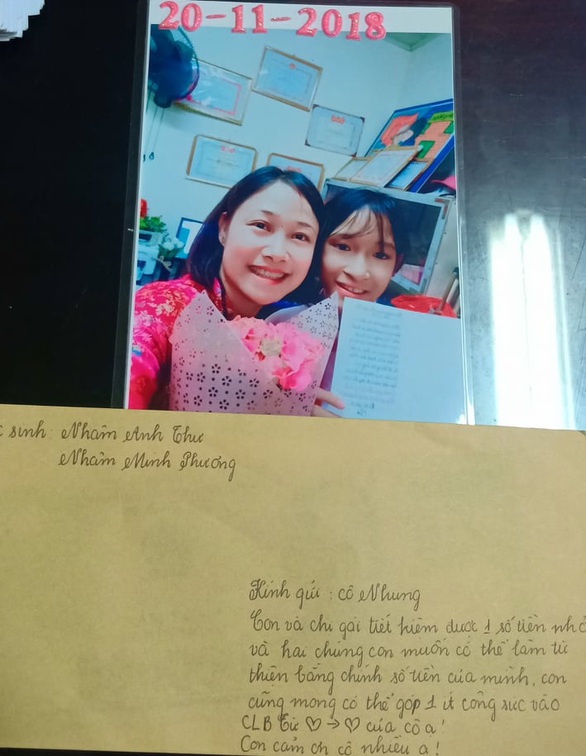 20-11-2018
sinh: Nhâm Anh Thư
Nhâm Minh Phương
Kính gửi : cô Nhung
Con và chị gái tiết kiệm được 1 số tiền nhỏ
và hai chúng con muốn có thể làm từ
thiện bằng chính số tiền của mình, con
cũng mong có thể góp 1 ít công sức vào
CLB Từ ♡ → ♡ của cô ạ!
Con cảm ơn cô nhiều ạ!